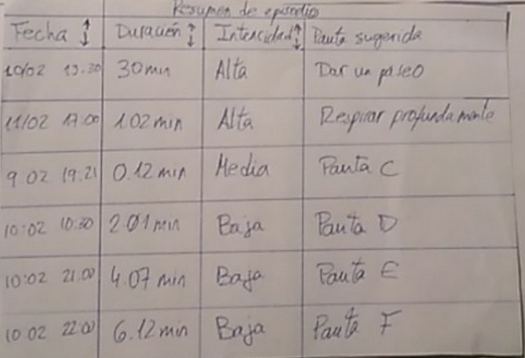 Resumen de episodios
Fecha ↕ Duración ↕ Intencidad ↕ Pauta sugerida
10/02 19:30 30min Alta Dar un paseo
11/02 17:00 1.02min Alta Respirar profundamente
9.02 19:21 0.12min Media Pauta C
10:02 10:30 2.01min Baja Pauta D
10:02 21.00 4.07min Baja Pauta E
10.02 22:00 6.12min Baja Pauta F